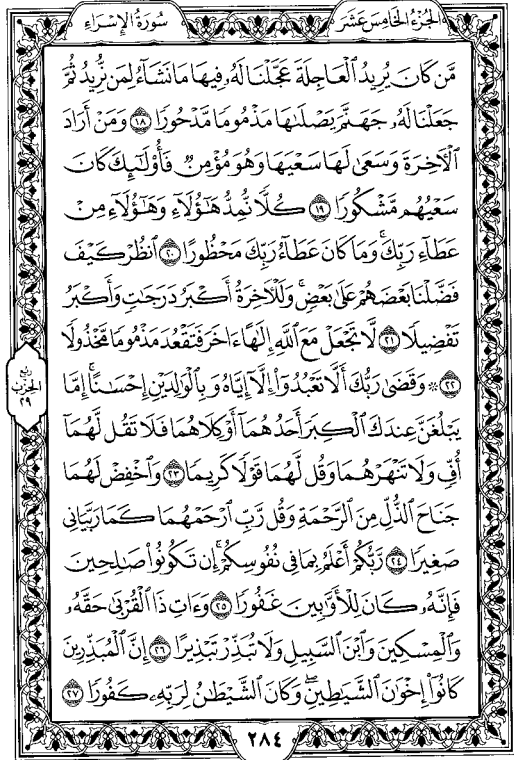 سُورَةُ الْإِسْرَاءِ
الجُزْءُ الخَامِسُ عَشَرَ
مَّن كَانَ يُرِيدُ ٱلْعَاجِلَةَ عَجَّلْنَا لَهُۥ فِيهَا مَا نَشَآءُ لِمَن نُّرِيدُ ثُمَّ
جَعَلْنَا لَهُۥ جَهَنَّمَ يَصْلَىٰهَا مَذْمُومًا مَّدْحُورًا ١٨ وَمَنْ أَرَادَ
ٱلْآخِرَةَ وَسَعَىٰ لَهَا سَعْيَهَا وَهُوَ مُؤْمِنٌ فَأُو۟لَٰٓئِكَ كَانَ
سَعْيُهُم مَّشْكُورًا ١٩ كُلًّا نُّمِدُّ هَٰٓؤُلَآءِ وَهَٰٓؤُلَآءِ مِنْ
عَطَآءِ رَبِّكَ ۚ وَمَا كَانَ عَطَآءُ رَبِّكَ مَحْظُورًا ٢٠ ٱنظُرْ كَيْفَ
فَضَّلْنَا بَعْضَهُمْ عَلَىٰ بَعْضٍ ۚ وَلَلْآخِرَةُ أَكْبَرُ دَرَجَٰتٍ وَأَكْبَرُ
تَفْضِيلًا ٢١ لَّا تَجْعَلْ مَعَ ٱللَّهِ إِلَٰهًا ءَاخَرَ فَتَقْعُدَ مَذْمُومًا مَّخْذُولًا
٢٢ ۞ وَقَضَىٰ رَبُّكَ أَلَّا تَعْبُدُوٓا۟ إِلَّآ إِيَّاهُ وَبِٱلْوَٰلِدَيْنِ إِحْسَٰنًا ۚ إِمَّا
يَبْلُغَنَّ عِندَكَ ٱلْكِبَرَ أَحَدُهُمَآ أَوْ كِلَاهُمَا فَلَا تَقُل لَّهُمَآ
أُفٍّ وَلَا تَنْهَرْهُمَا وَقُل لَّهُمَا قَوْلًا كَرِيمًا ٢٣ وَٱخْفِضْ لَهُمَا
جَنَاحَ ٱلذُّلِّ مِنَ ٱلرَّحْمَةِ وَقُل رَّبِّ ٱرْحَمْهُمَا كَمَا رَبَّيَانِى
صَغِيرًا ٢٤ رَّبُّكُمْ أَعْلَمُ بِمَا فِى نُفُوسِكُمْ ۚ إِن تَكُونُوا۟ صَٰلِحِينَ
فَإِنَّهُۥ كَانَ لِلْأَوَّٰبِينَ غَفُورًا ٢٥ وَءَاتِ ذَا ٱلْقُرْبَىٰ حَقَّهُۥ
وَٱلْمِسْكِينَ وَٱبْنَ ٱلسَّبِيلِ وَلَا تُبَذِّرْ تَبْذِيرًا ٢٦ إِنَّ ٱلْمُبَذِّرِينَ
كَانُوٓا۟ إِخْوَٰنَ ٱلشَّيَٰطِينِ ۖ وَكَانَ ٱلشَّيْطَٰنُ لِرَبِّهِۦ كَفُورًا ٢٧
ربع
الحزب
٢٩
٢٨٤